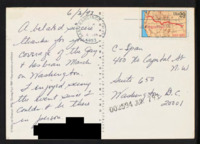 6/2/93
A belated sincere
thanks for your
coverage of the Gay
& Lesbian March
on Washington.
I enjoyed seeing
the event since I
couldn't be there
in person
C-Span
400 No Capitol St
N.W
Suite 650
Washington D.C.
20001